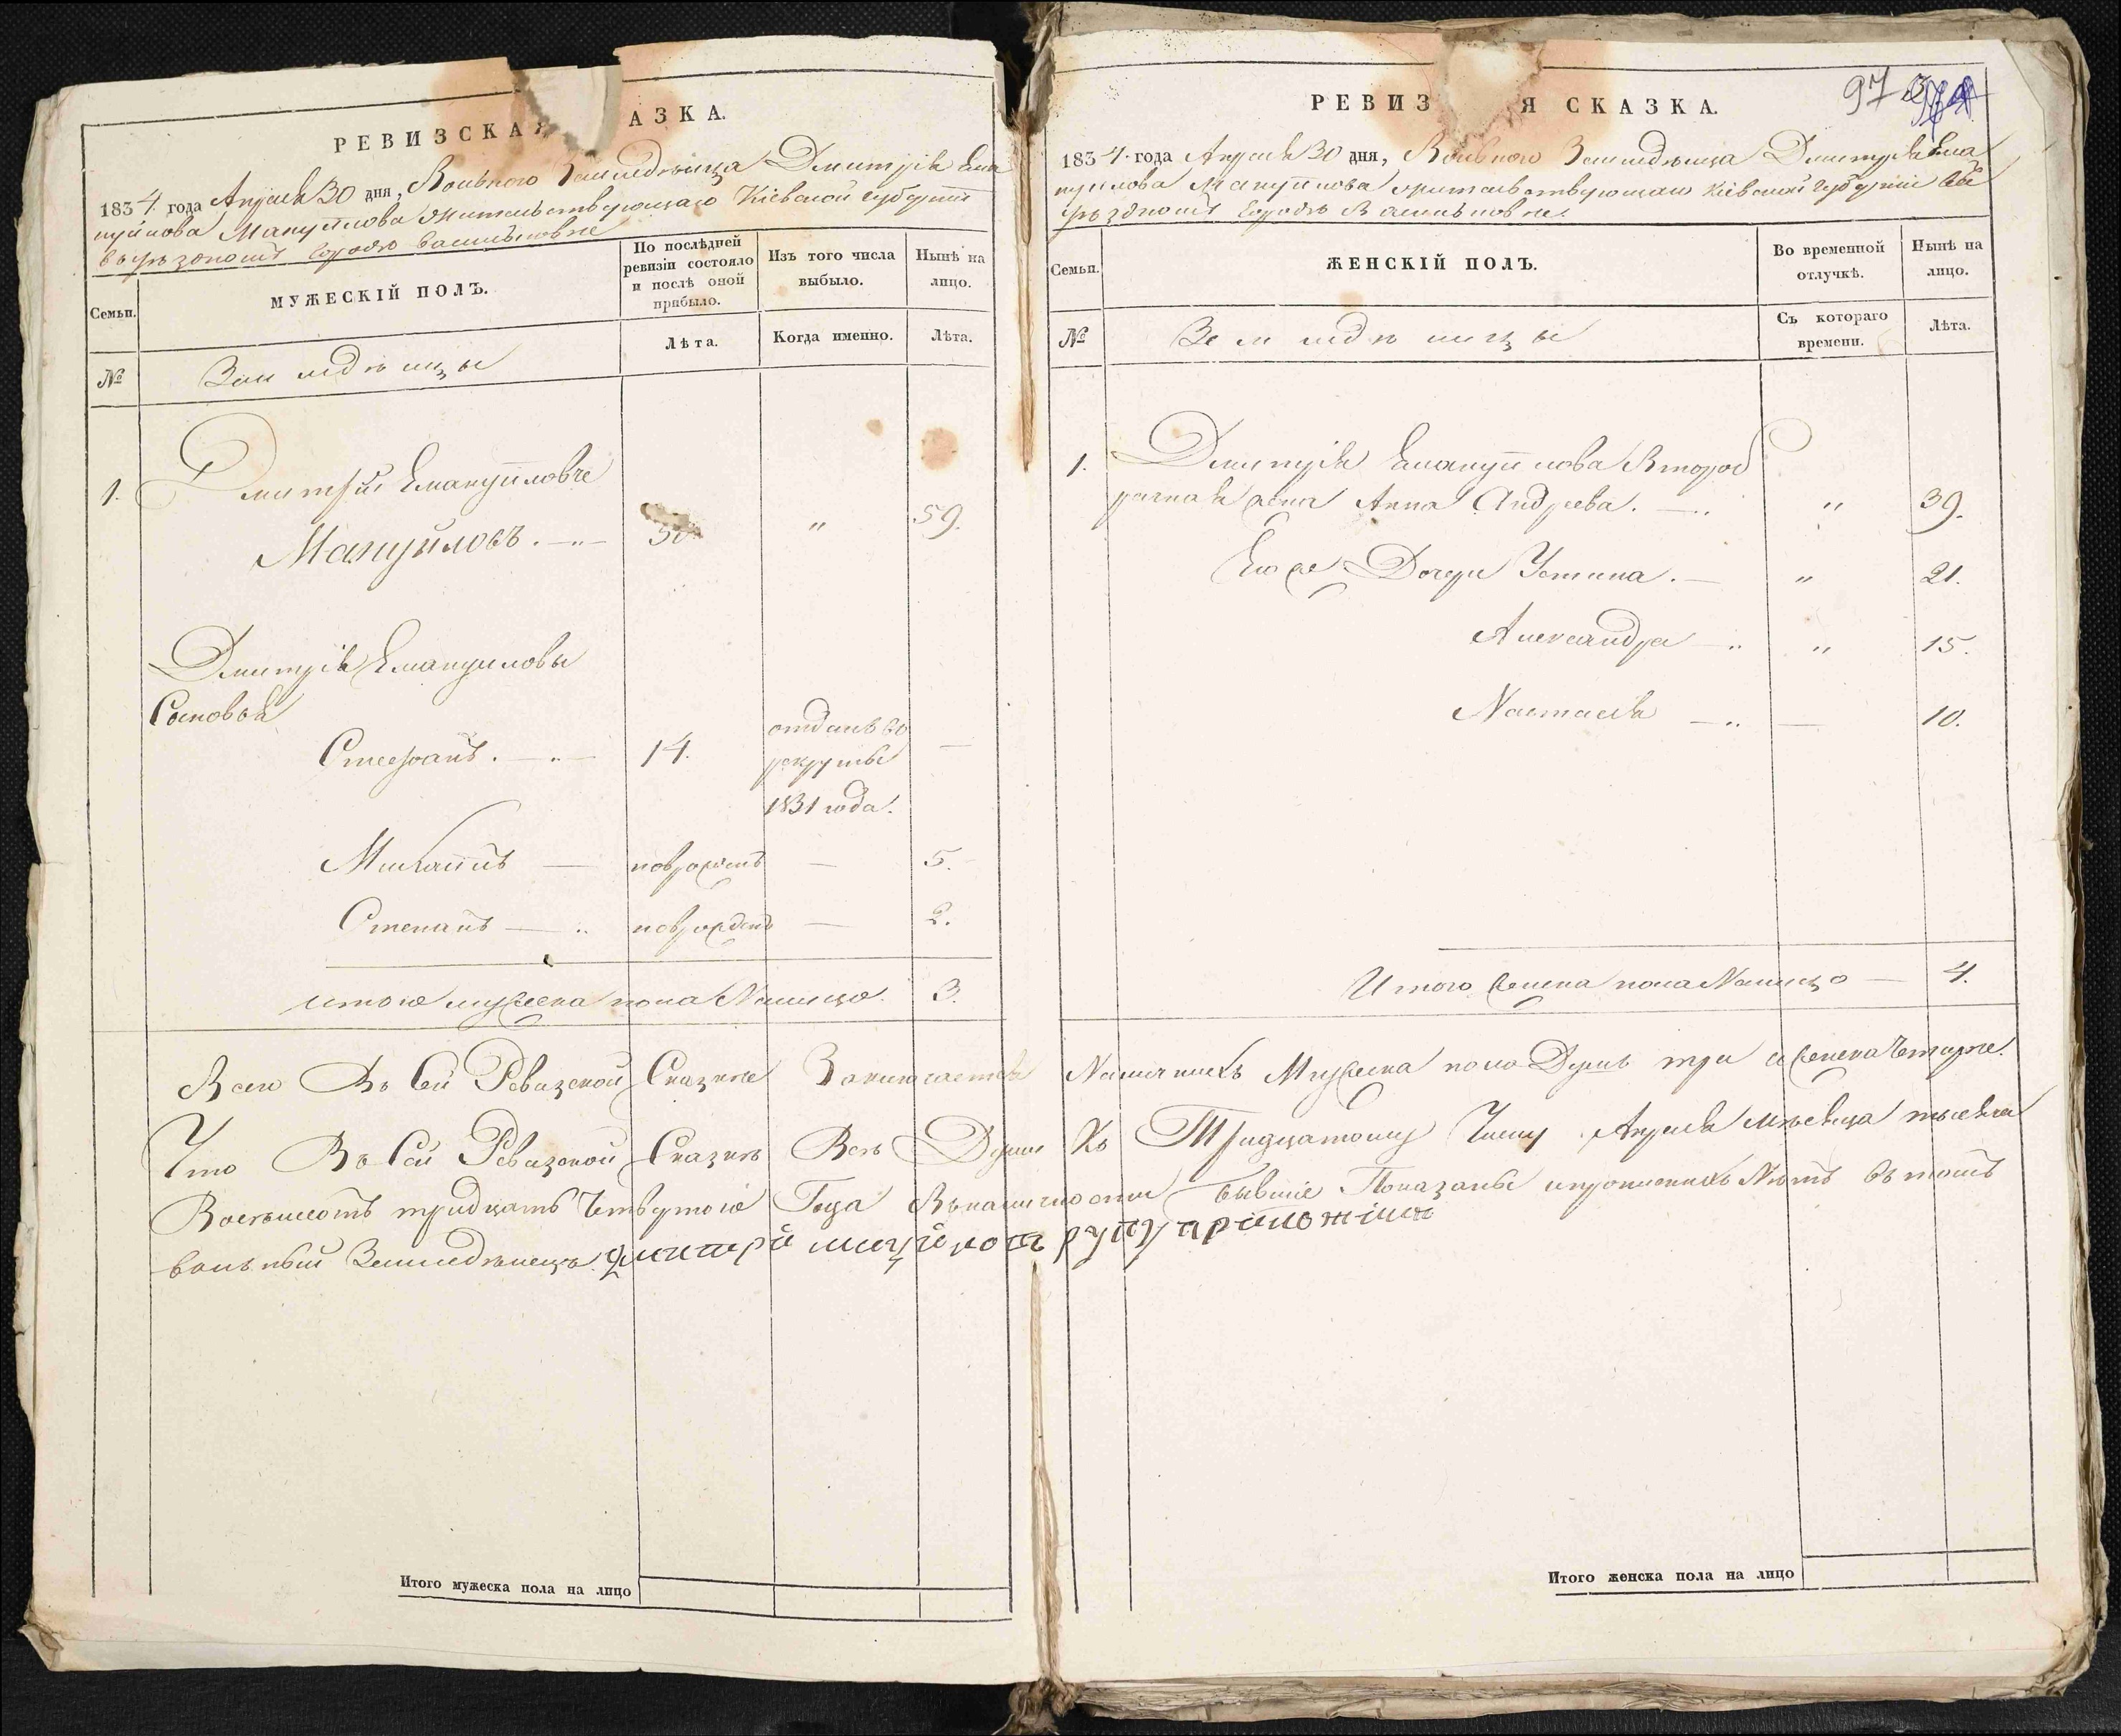 РЕВИЗСКАЯ АЗКА.
1834. года Апреля 30 дня, Вольного Земледельца Дмитрія Ема
нуилова Мануйлова Жительствующаго Кіевской губерніи
въ уездномъ городе Василькове
Семьи.
МУЖЕСКІЙ ПОЛЪ.
По послѣдней ревизіи состояло и послѣ оной прибыло.
Изъ того числа выбыло.
Нынѣ на лицо.
№
Земледельцы
Лѣта.
Когда именно.
Лѣта.
1. Дмитрій Емануиловъ
Мануйловъ. 50 " 59.
Дмитрія Емануиловы
Сыновья
Стефанъ. 14. отданъ въ рекруты 1831 года. —
Михаилъ — новрожденъ — 5.
Степанъ — новрожденъ — 2.
итого мужеска пола Налицо. 3.
Итого мужеска пола на лицо
РЕВИЗ Я СКАЗКА.
97
1834. года Апреля 30 дня, Вольного Земледельца Дмитрія Ема
нуилова Мануйлова жительствующаго Кіевской губерніи
уездномъ городе Василькове.
Семьи.
ЖЕНСКІЙ ПОЛЪ.
Во временной отлучкѣ.
Нынѣ на лицо.
№
Земледельцы
Съ котораго времени.
Лѣта.
1. Дмитрія Емануилова Второб
рачная жена Анна Андреева. " 39.
Его же Дочери Устина. — " 21.
Александра — " 15.
Настасія — — 10.
Итого женска пола Налицо — 4.
Всего Въ Сей Ревизской Сказке Заключается Наличныхъ Мужеска пола Душъ три и женска Четыре.
Что Въ Сей Ревизской Сказке Все Души Къ Тридцатому Числу Апреля месяца тысяча
Восемьсотъ тридцать Четвертого Года Въ наличности бывшіе Показаны и прописныхъ Нетъ въ томъ
вольный Земледелецъ Дмитрій мануйловъ руку приложилъ
Итого женска пола на лицо